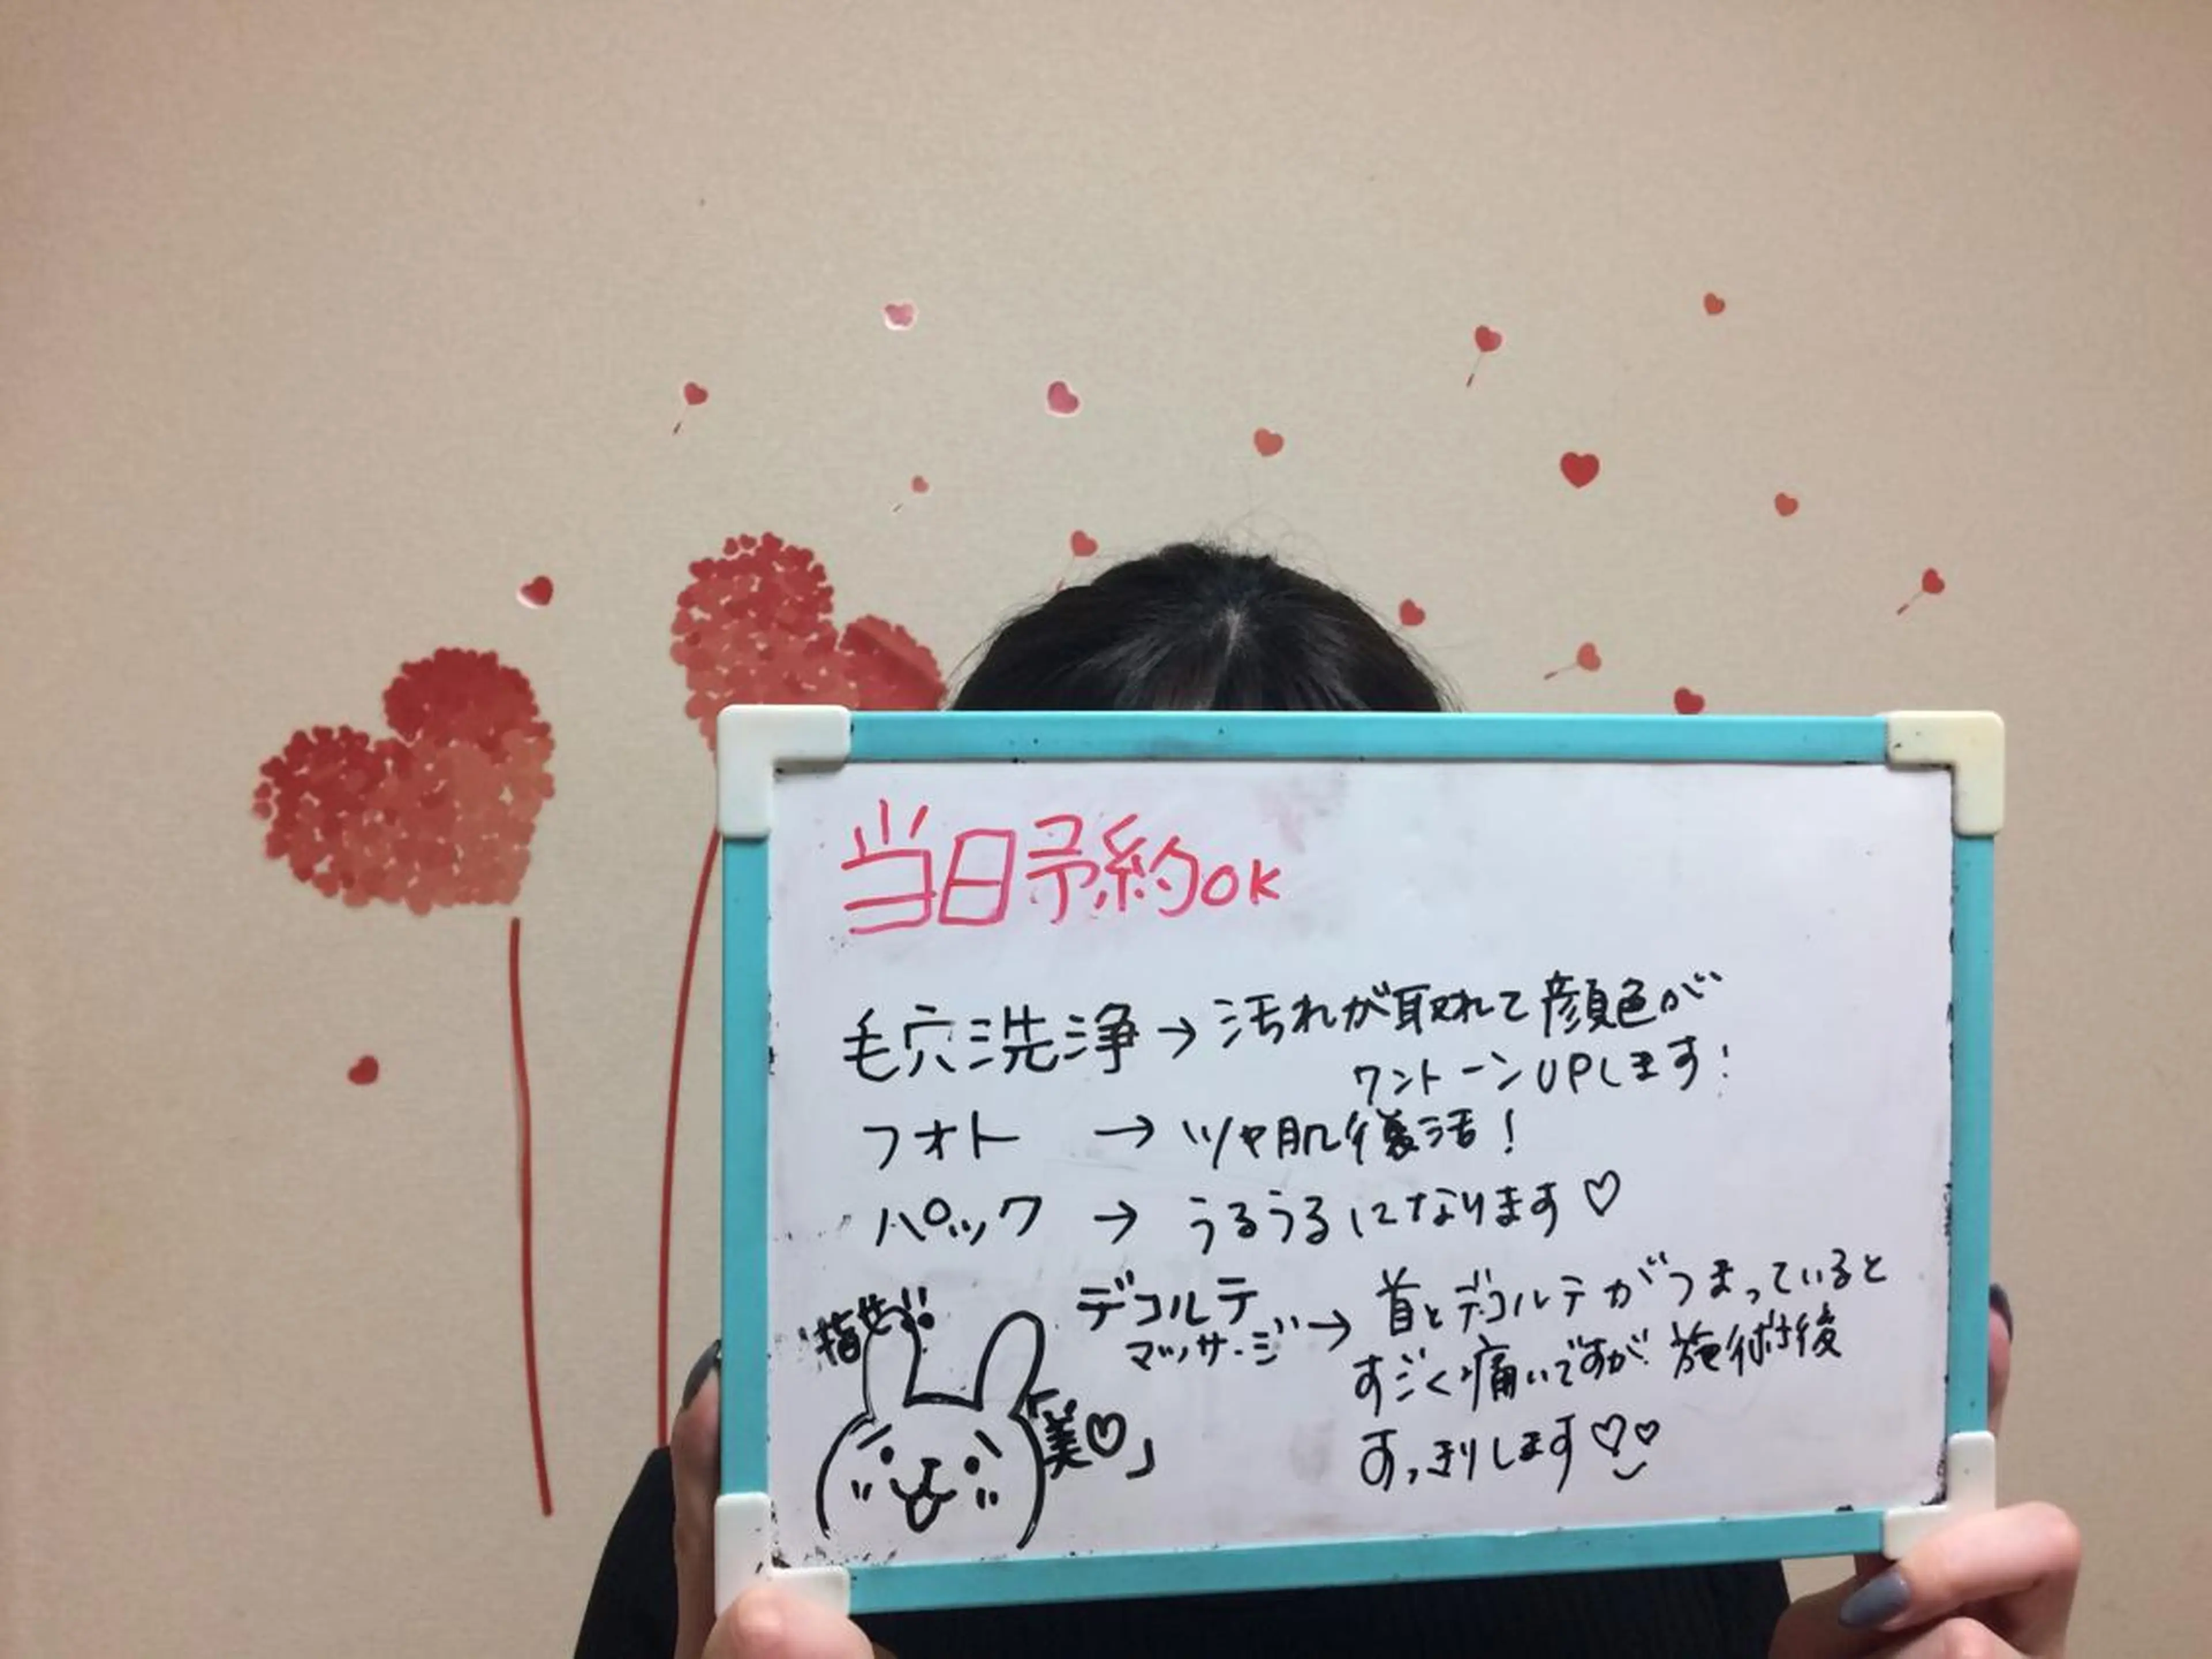 当日予約OK
毛穴洗浄→汚れが取れて顔色が
ワントーンUPします!
フォト → ツヤ肌復活!
パック → うるうるになります♡
デコルテ
マッサージ→首とデコルテがつまっていると
すごく痛いですが施術後
すっきりします♡♡
「美♡」